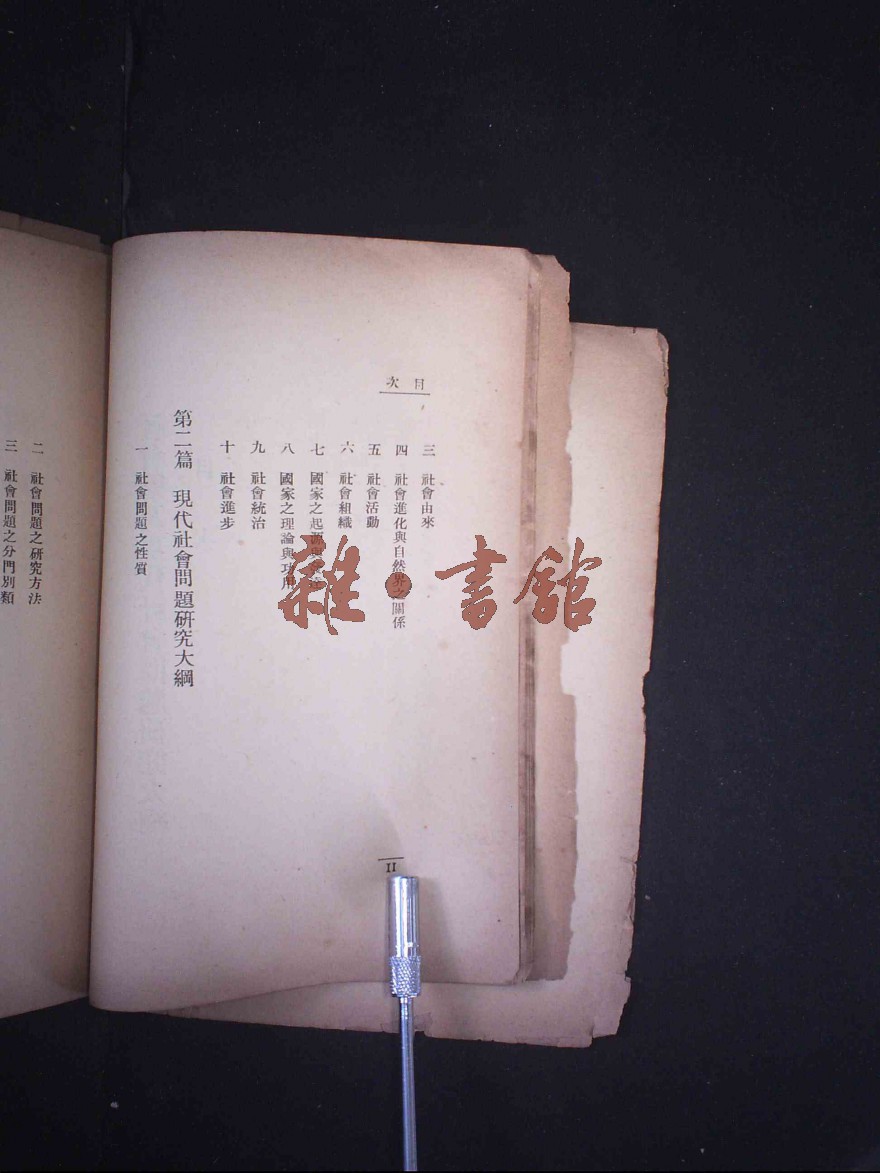 次目
三 社會由來
四 社會進化與自然界之關係
五 社會活動
六 社會組織
七 國家之起源與
八 國家之理論與功用
九 社會統治
十 社會進步
第二篇 現代社會問題研究大綱
一 社會問題之性質
II
二 社會問題之研究方法
三 社會問題之分門別類
雜・書館